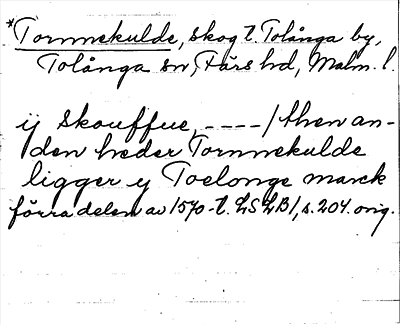 *Tornnekulde, skog t. Tolånga by,
Tolånga sn, Färs hd, Malm. l.
ij skouffue, ----/ then an-
den heder Tornnekulde
ligger y Toelonge marck
förra delen av 1570-t. LSLB1, s. 204. orig.